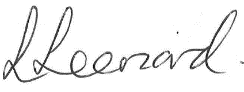 L Leonard.